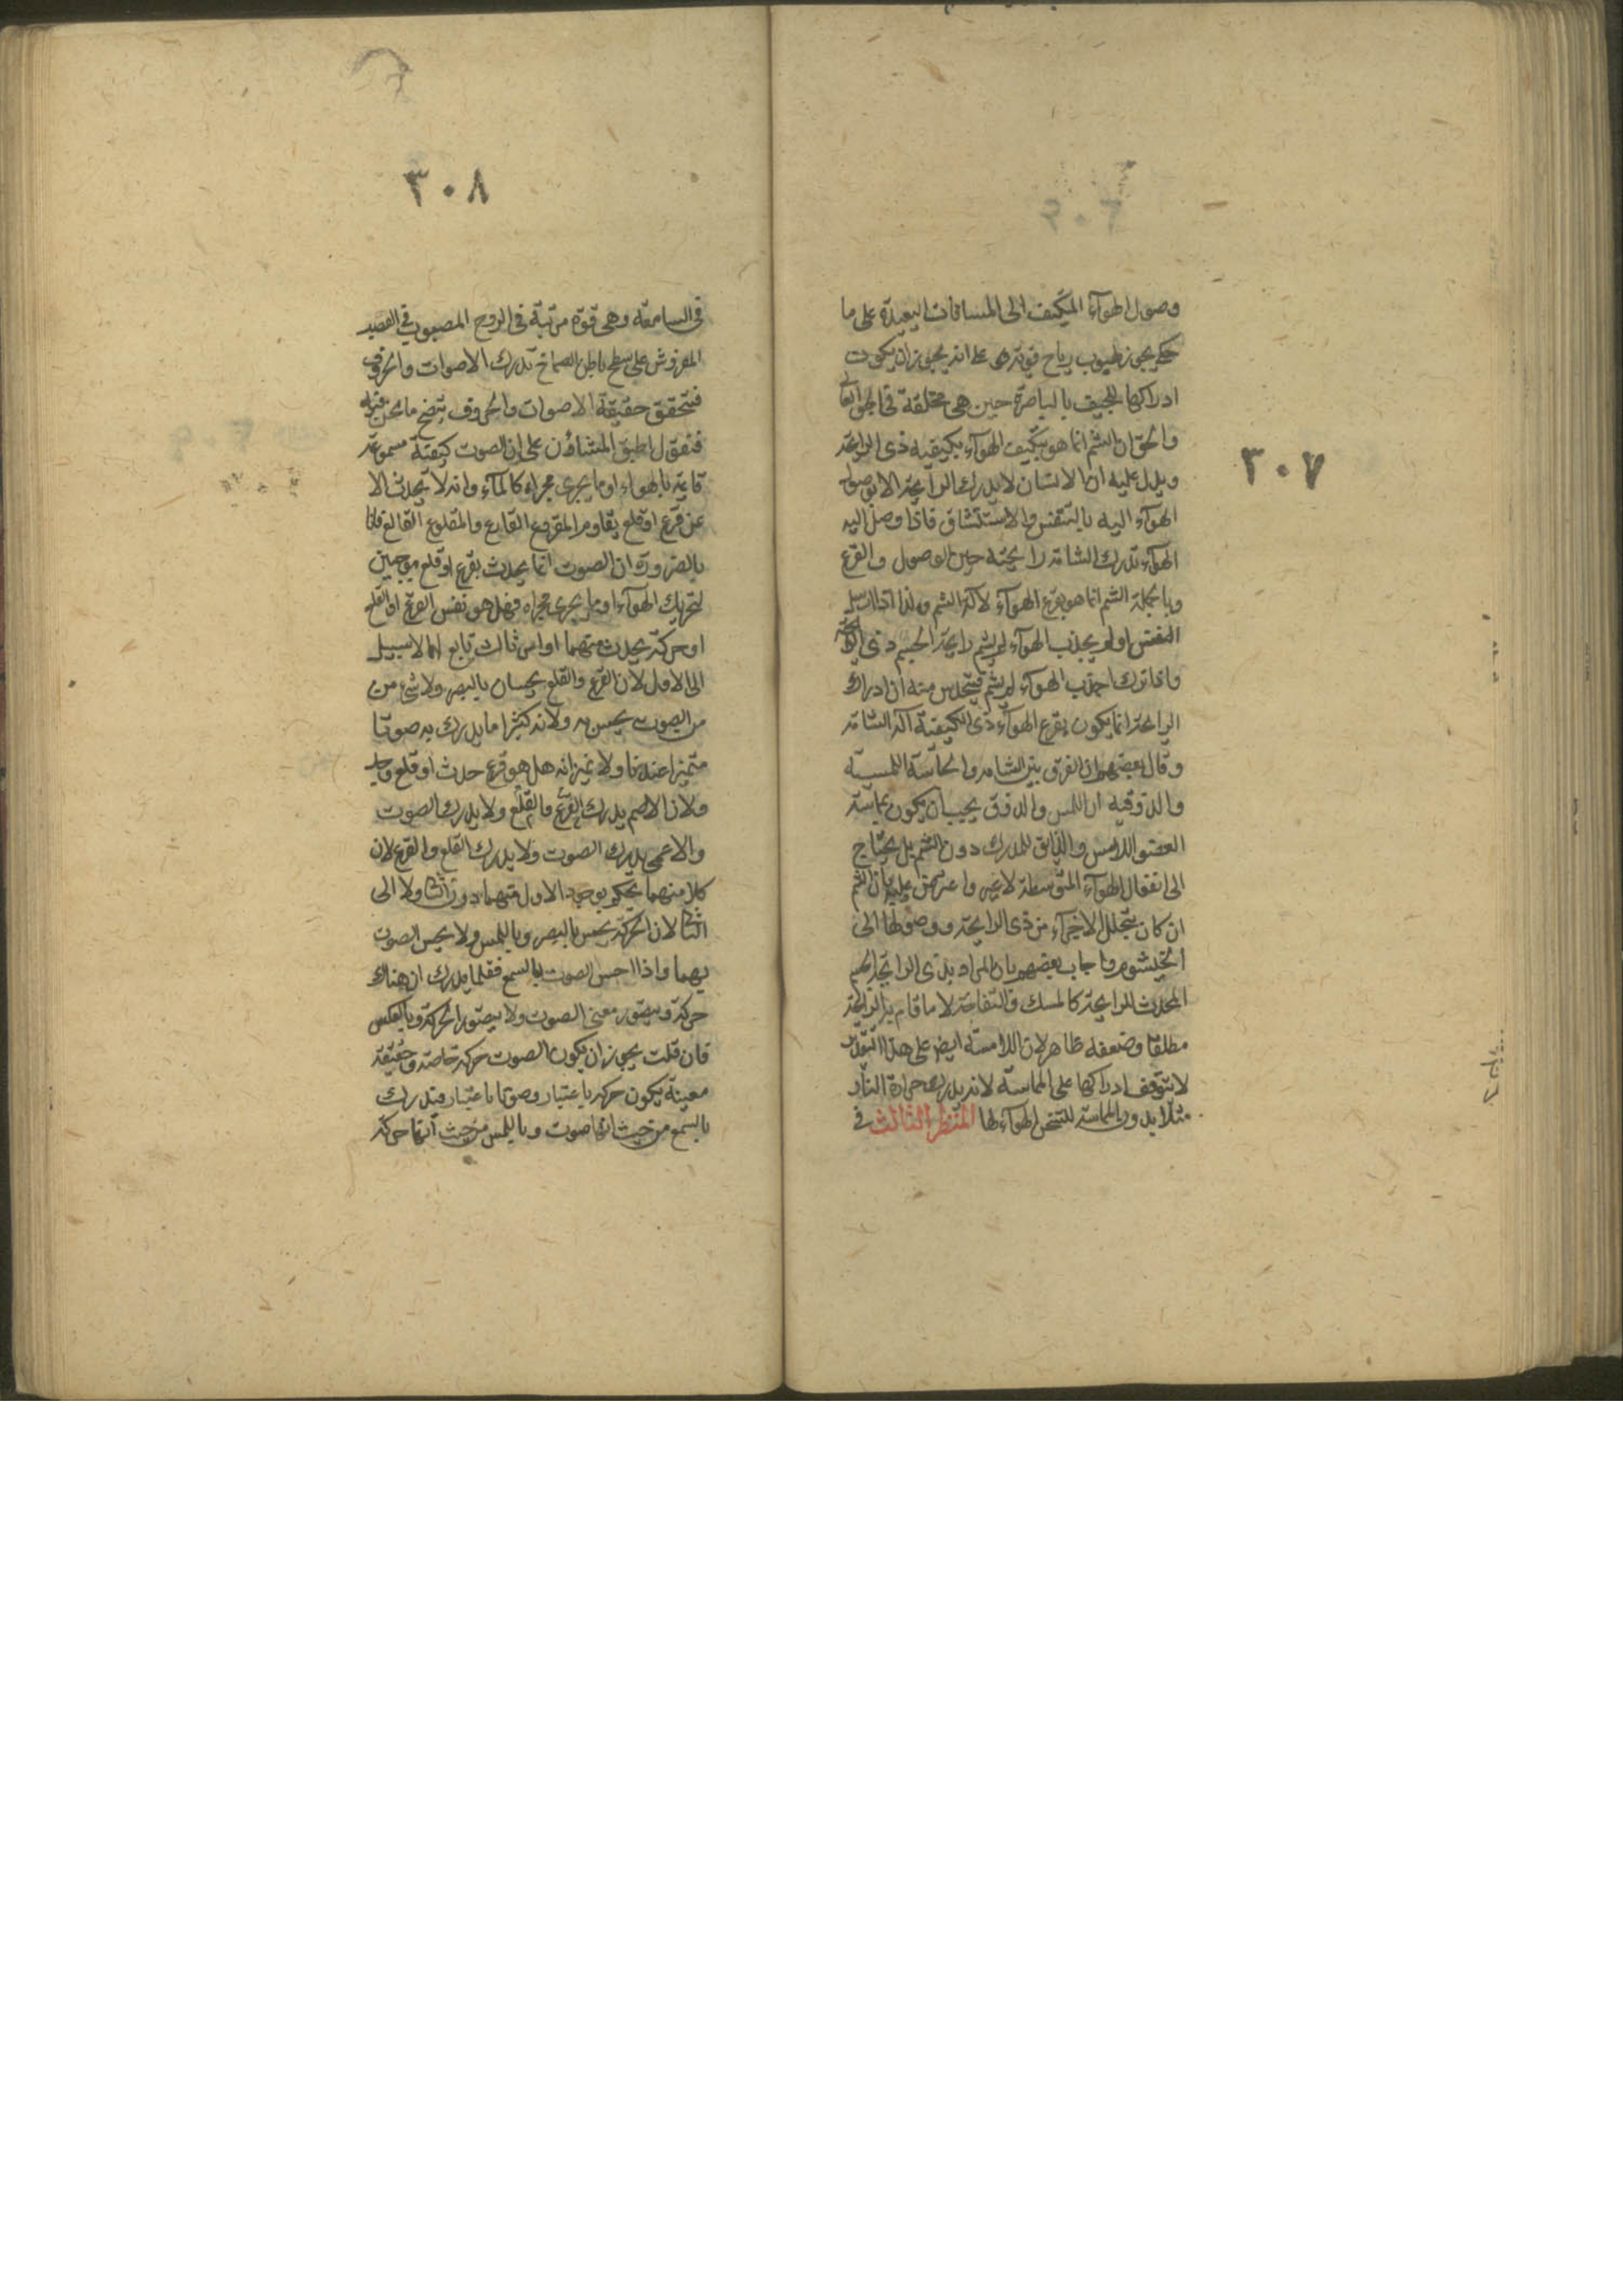 ٣٠٧
وصول الهوآء المتكيف الى المسافات البعيدة على ما
حكى يجوز لهبوب رياح قوية هى على انه يجوز ان يكون
ادراكها للجيف بالباصرة حين هى محلقة فى الجو العالى
والحق ان الشم انما هو بتكيف الهوآء بكيفيه ذى الرايحة
ويدل عليه ان الانسان لا يدرك الرايحة الا بوصول
الهوآء اليه بالتنفس والاستنشاق فاذا وصل اليه
الهوآء تدرك الشامة رايحته حين الوصول والقرع
وبالجملة الشم انما هو بقرع الهوآء لآلة الشم ولذا اذا ارسل
النفس او لم يجذب الهوآء لم يشم رايحة الجسم ذى الرايحة
واذا ترك جذب الهوآء لم يشم فيتحدس منه ان ادراك
الرايحة انما يكون بقرع الهوآء ذى الكيفية آلة الشامة
وقال بعضهم ان الفرق بين الشامه والحاسة اللمسية
والذوقيه ان اللمس والذوق يجب ان يكون بمماسة
العضو اللامس والذايق للمدرك دون الشم بل يحتاج
الى انفعال الهوآء المتوسطة لا غير واعترض عليه بان الشم
ان كان بتحلل الاجزآء من ذى الرايحة ووصولها الى
الخيشوم واجاب بعضهم بان المراد بذى الرايحة الجسم
المحدث للرايحة كالمسك والتفاحة لا ما قام به الرايحة
مطلقا وضعفه ظاهر لان اللامسة ايضا على هذا التقدير
لا يتوقف ادراكها على المماسة لانه يدرك حرارة النار
مثلا بدون المماسة لتسخن الهوآء لها المنظر الثالث فى
٣٠٨
فى السامعة وهى قوة مرتبة فى الروح المصبوب فى العصب
المفروش على سطح باطن الصماخ تدرك الاصوات والحروف
فبتحقق حقيقة الاصوات والحروف يتضح ما نحن فيه
فنقول اطبق المشاؤن على ان الصوت كيفية مسموعة
قايمة بالهواء او ما يجرى مجراه كالمآء وانه لا يحدث الا
عن قرع او قلع يقاوم المقروع القارع والمقلوع القالع فاذا
بالضرورة ان الصوت انما يحدث بقرع او قلع موجبين
لتحريك الهوآء او ما يجرى مجراه فهل هو نفس القرع او القلع
او حركة يحدث منهما او امر ثالث تابع لهما لا سبيل
الى الاول لان القرع والقلع يحسان بالبصر ولا شئ من
من الصوت يحس به ولانه كثيرا ما يدرك به صوتا
متميزا عندنا ولا نميز انه هل هو قرع حدث او قلع وجد
ولان الاصم يدرك القرع والقلع ولا يدرك الصوت
والاعمى يدرك الصوت ولا يدرك القلع والقرع لان
كلا منهما يحكم بوجود الاول منهما دون الثانى ولا الى
الثانى لان الحركة يحس بالبصر وباللمس ولا يحس الصوت
بهما واذا احس الصوت بالسمع فقلما يدرك ان هناك
حركة ويتصور معنى الصوت ولا يتصور الحركة وبالعكس
فان قلت يجوز ان يكون الصوت حركة خاصة وحقيقة
معينة يكون حركة باعتبار وصوتا باعتبار فتدرك
بالسمع من حيث انها صوت وباللمس من حيث انها حركة